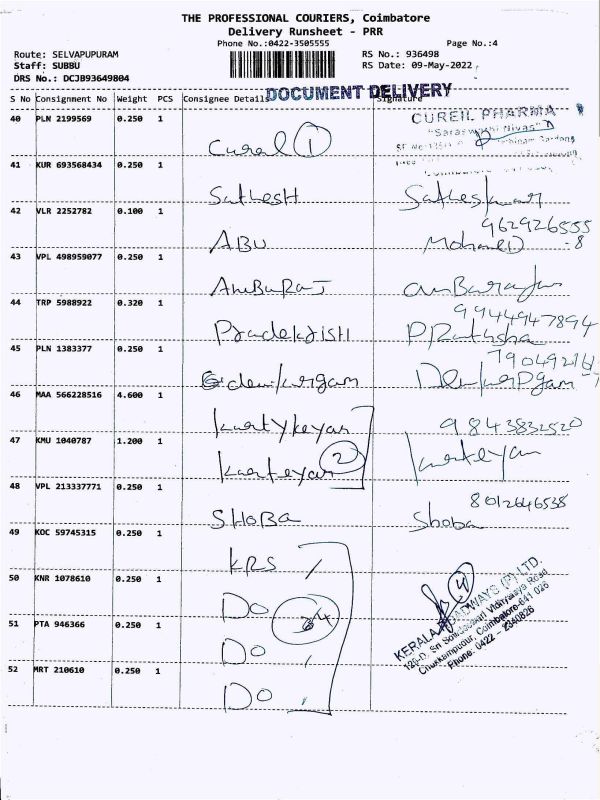 THE PROFESSIONAL COURIERS, Coimbatore
Delivery Runsheet - PRR
Phone No.:0422-3505555 Page No.:4
Route: SELVAPUPURAM RS No.: 936498
Staff: SUBBU RS Date: 09-May-2022
DRS No.: DCJB93649804
DOCUMENT DELIVERY
S No Consignment No Weight PCS Consignee Details Signature
40 PLN 2199569 0.250 1
CUREIL PHARMA
"Saraswathi Nivas"
Cural 1
41 KUR 693568434 0.250 1
SatHesH Satheskumar
42 VLR 2252782 0.100 1
962926555
ABU Mohamed -8
43 VPL 498959077 0.250 1
AnBuRaJ anBarajan
44 TRP 5988922 0.320 1
9944947894
PradekJisH
45 PLN 1383377 0.250 1
46 MAA 566228516 4.600 1
kartykeyan 9843832520
47 KMU 1040787 1.200 1
karteyan 2 karteyan
48 VPL 213337771 0.250 1
8012646538
SHOBA Shoba
49 KOC 59745315 0.250 1
KRS
50 KNR 1078610 0.250 1
Do 4
4
KERALA ROADWAYS (P) LTD.
120-D, Sri Sowdeswari Vidhyalaya Road
Coimbatore-641 026
Phone: 0422 - 2340826
51 PTA 946366 0.250 1
Do
52 MRT 210610 0.250 1
Do